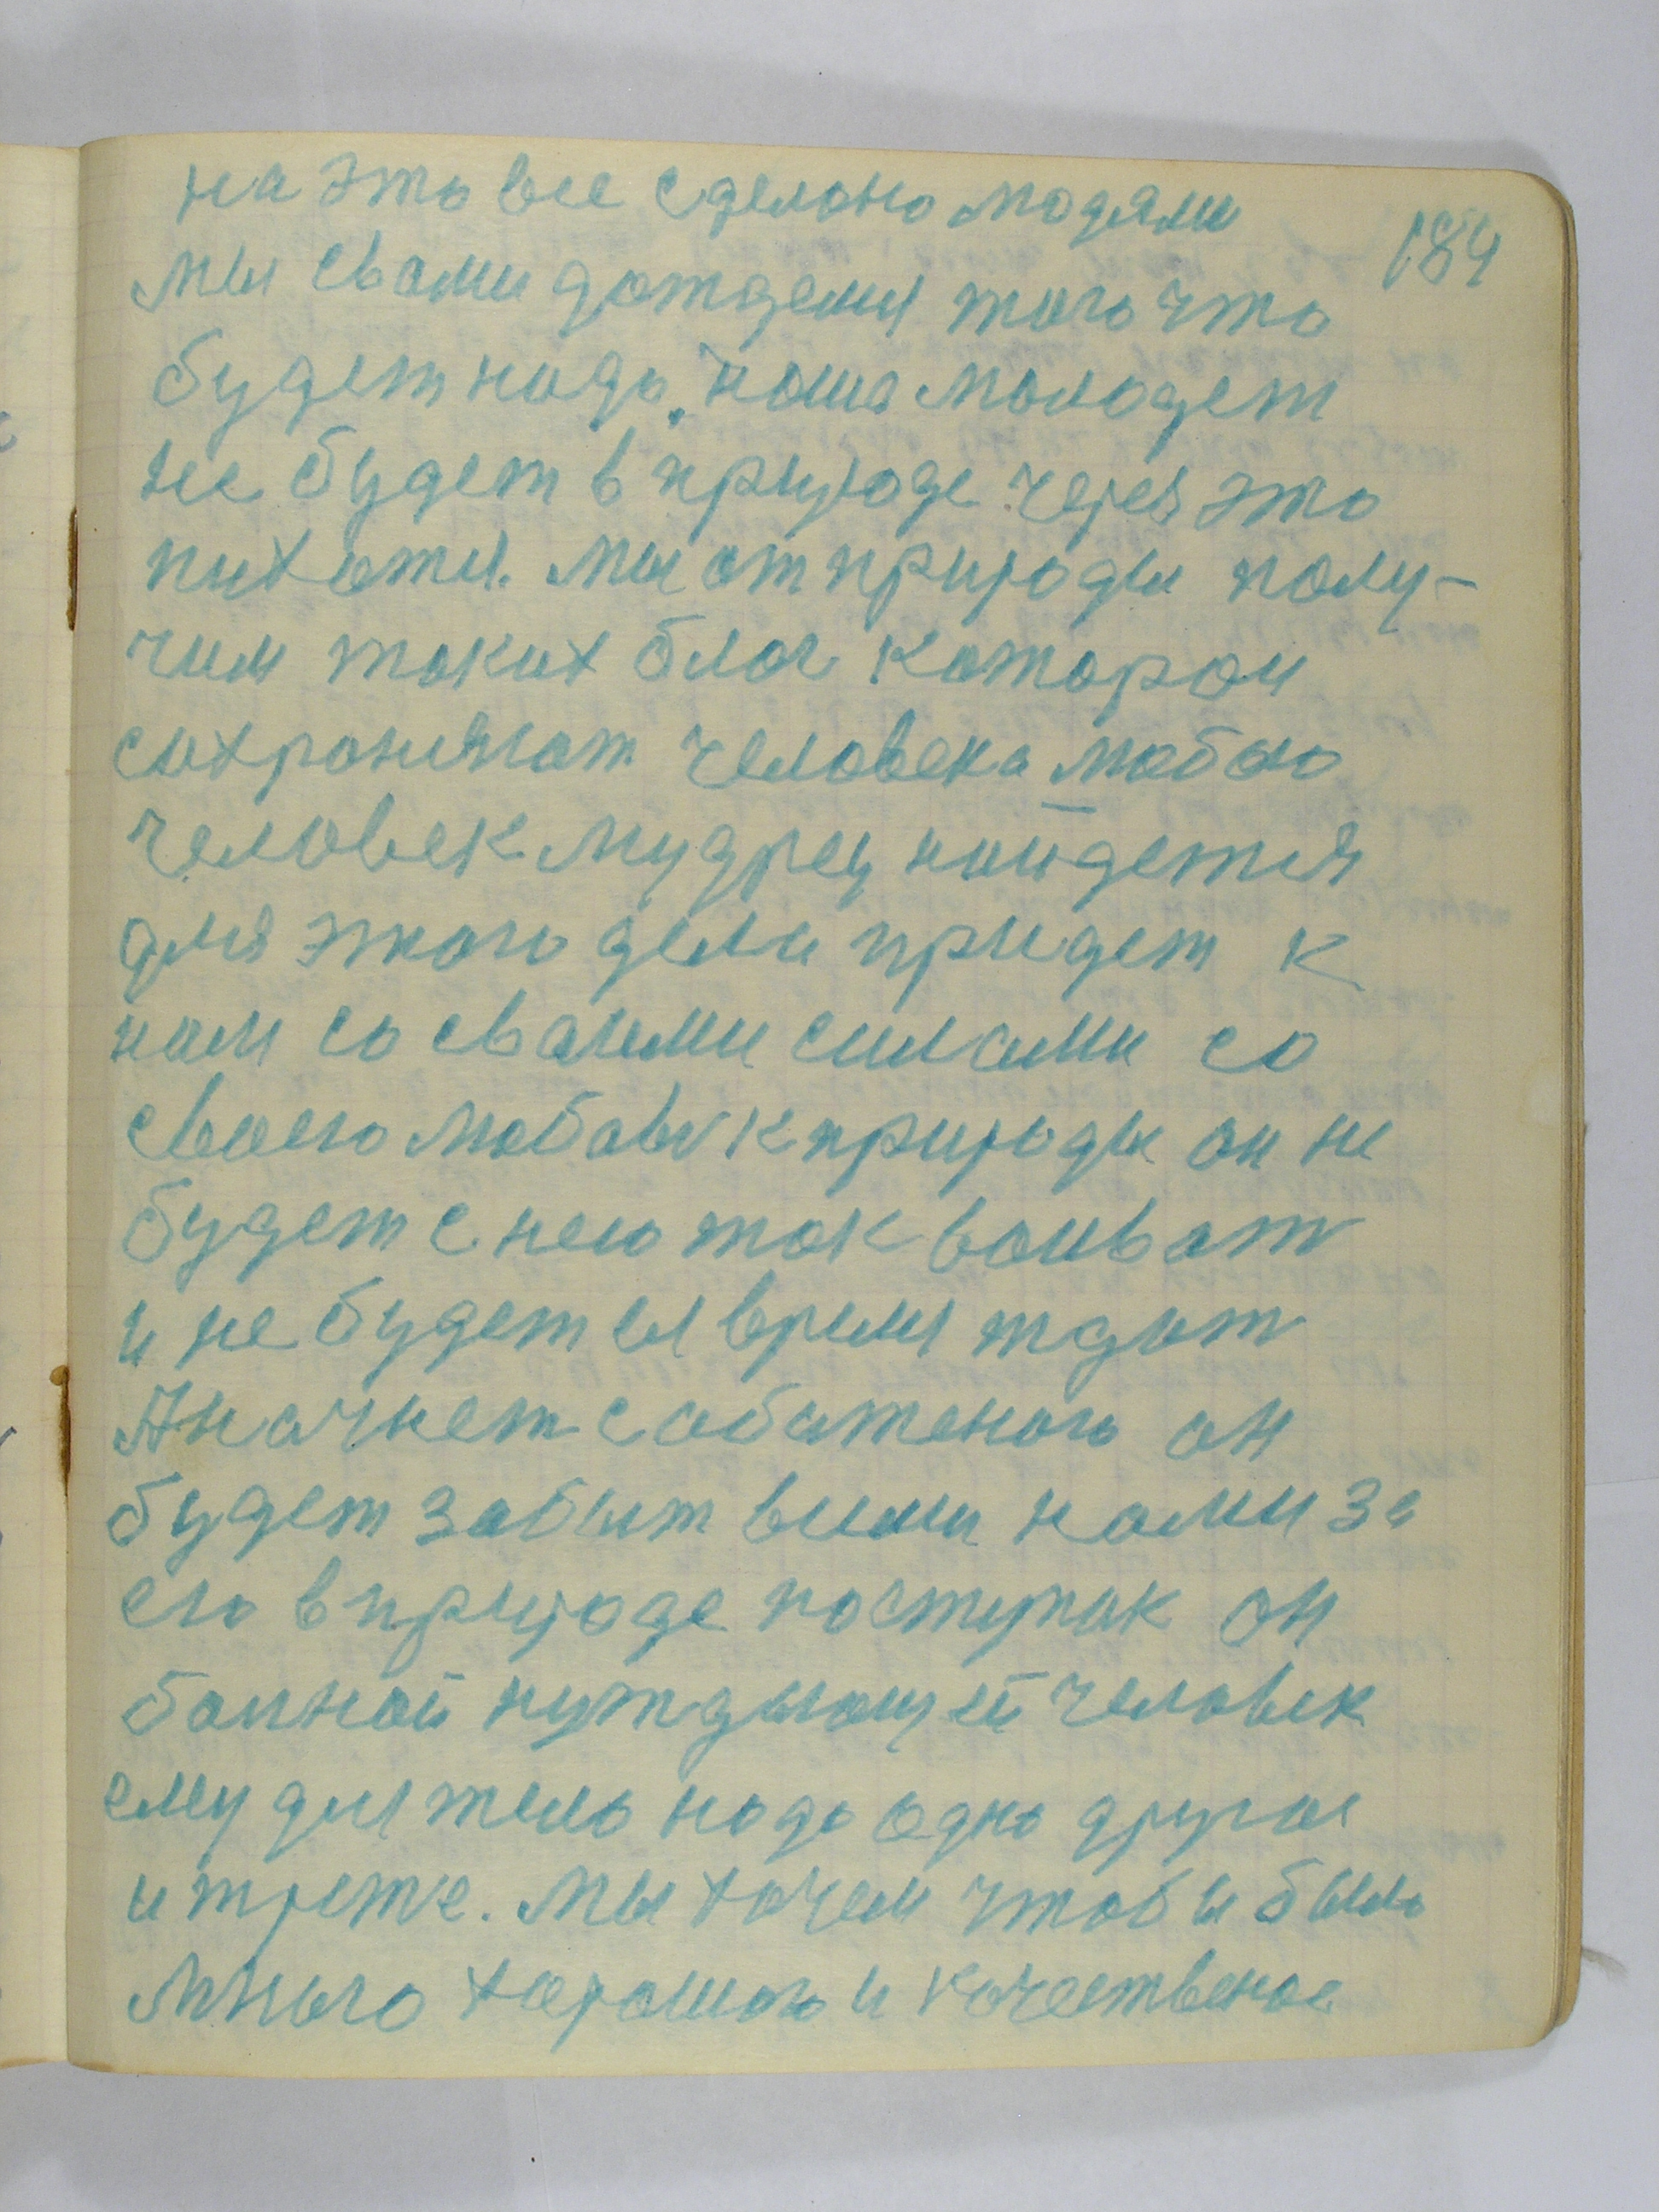 на это все сделоно людями
184
мы свами дождемся того что
будет надо. наша молодеж
не будет в природе через это
пихатся. мы от природы полу-
чим таких благ каторои
сохроняют человека любого
человек мудрец найдется
для этого дела придет к
нам со сваими силами со
своею любовю к природы он не
будет с нею так воиват
и не будет ея время ждат
А начнет собственого он
будет забыт всими нами за
его в природе поступак он
болной нуждающей человек
ему для тело надо одно другое
и трете. мы хочем чтобы было
много хорошого и качественое